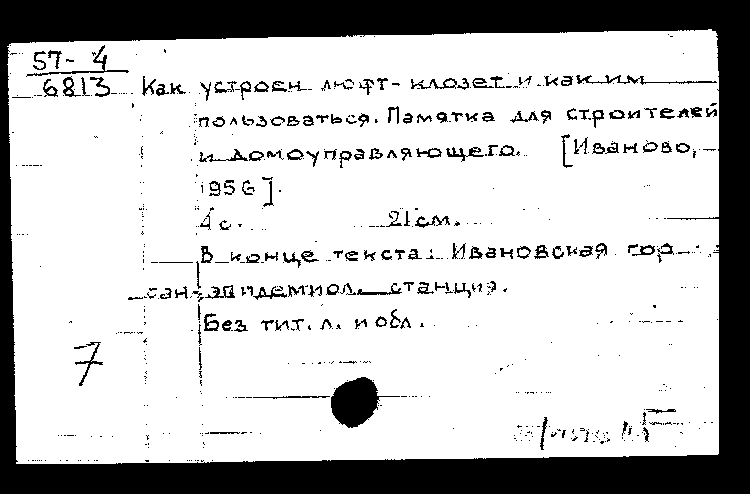 57-4
6813
Как устроен люфт-клозет и как им
пользоваться. Памятка для строителей
и домоуправляющего. [Иваново,
1956].
4 с. 21 см.
В конце текста: Ивановская гор.
сан-эпидемиол. станция.
Без тит. л. и обл.
7